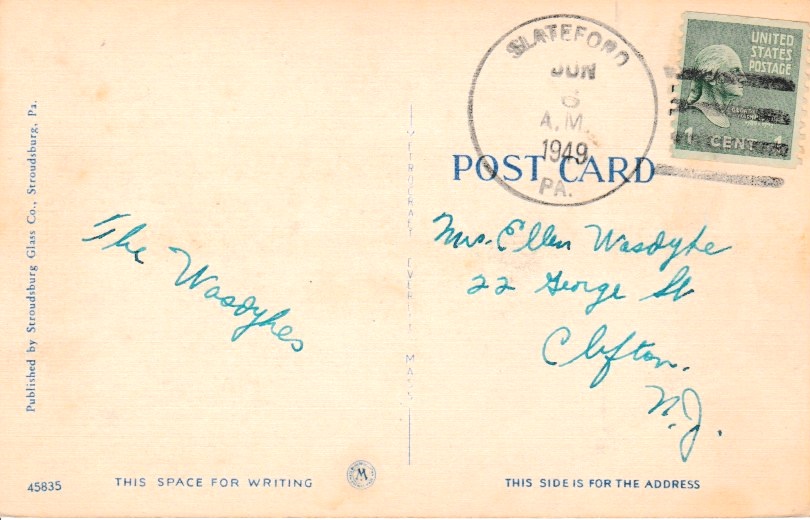 Published by Stroudsburg Glass Co., Stroudsburg, Pa.
The Wasdykes
45835
THIS SPACE FOR WRITING
METROCRAFT EVERETT MASS
SLATEFORD
JUN
6
A.M.
1949
PA.
UNITED
STATES
POSTAGE
1 CENT 1
POST CARD
Mrs. Ellen Wasdyke
22 George St
Clifton.
N.J.
THIS SIDE IS FOR THE ADDRESS